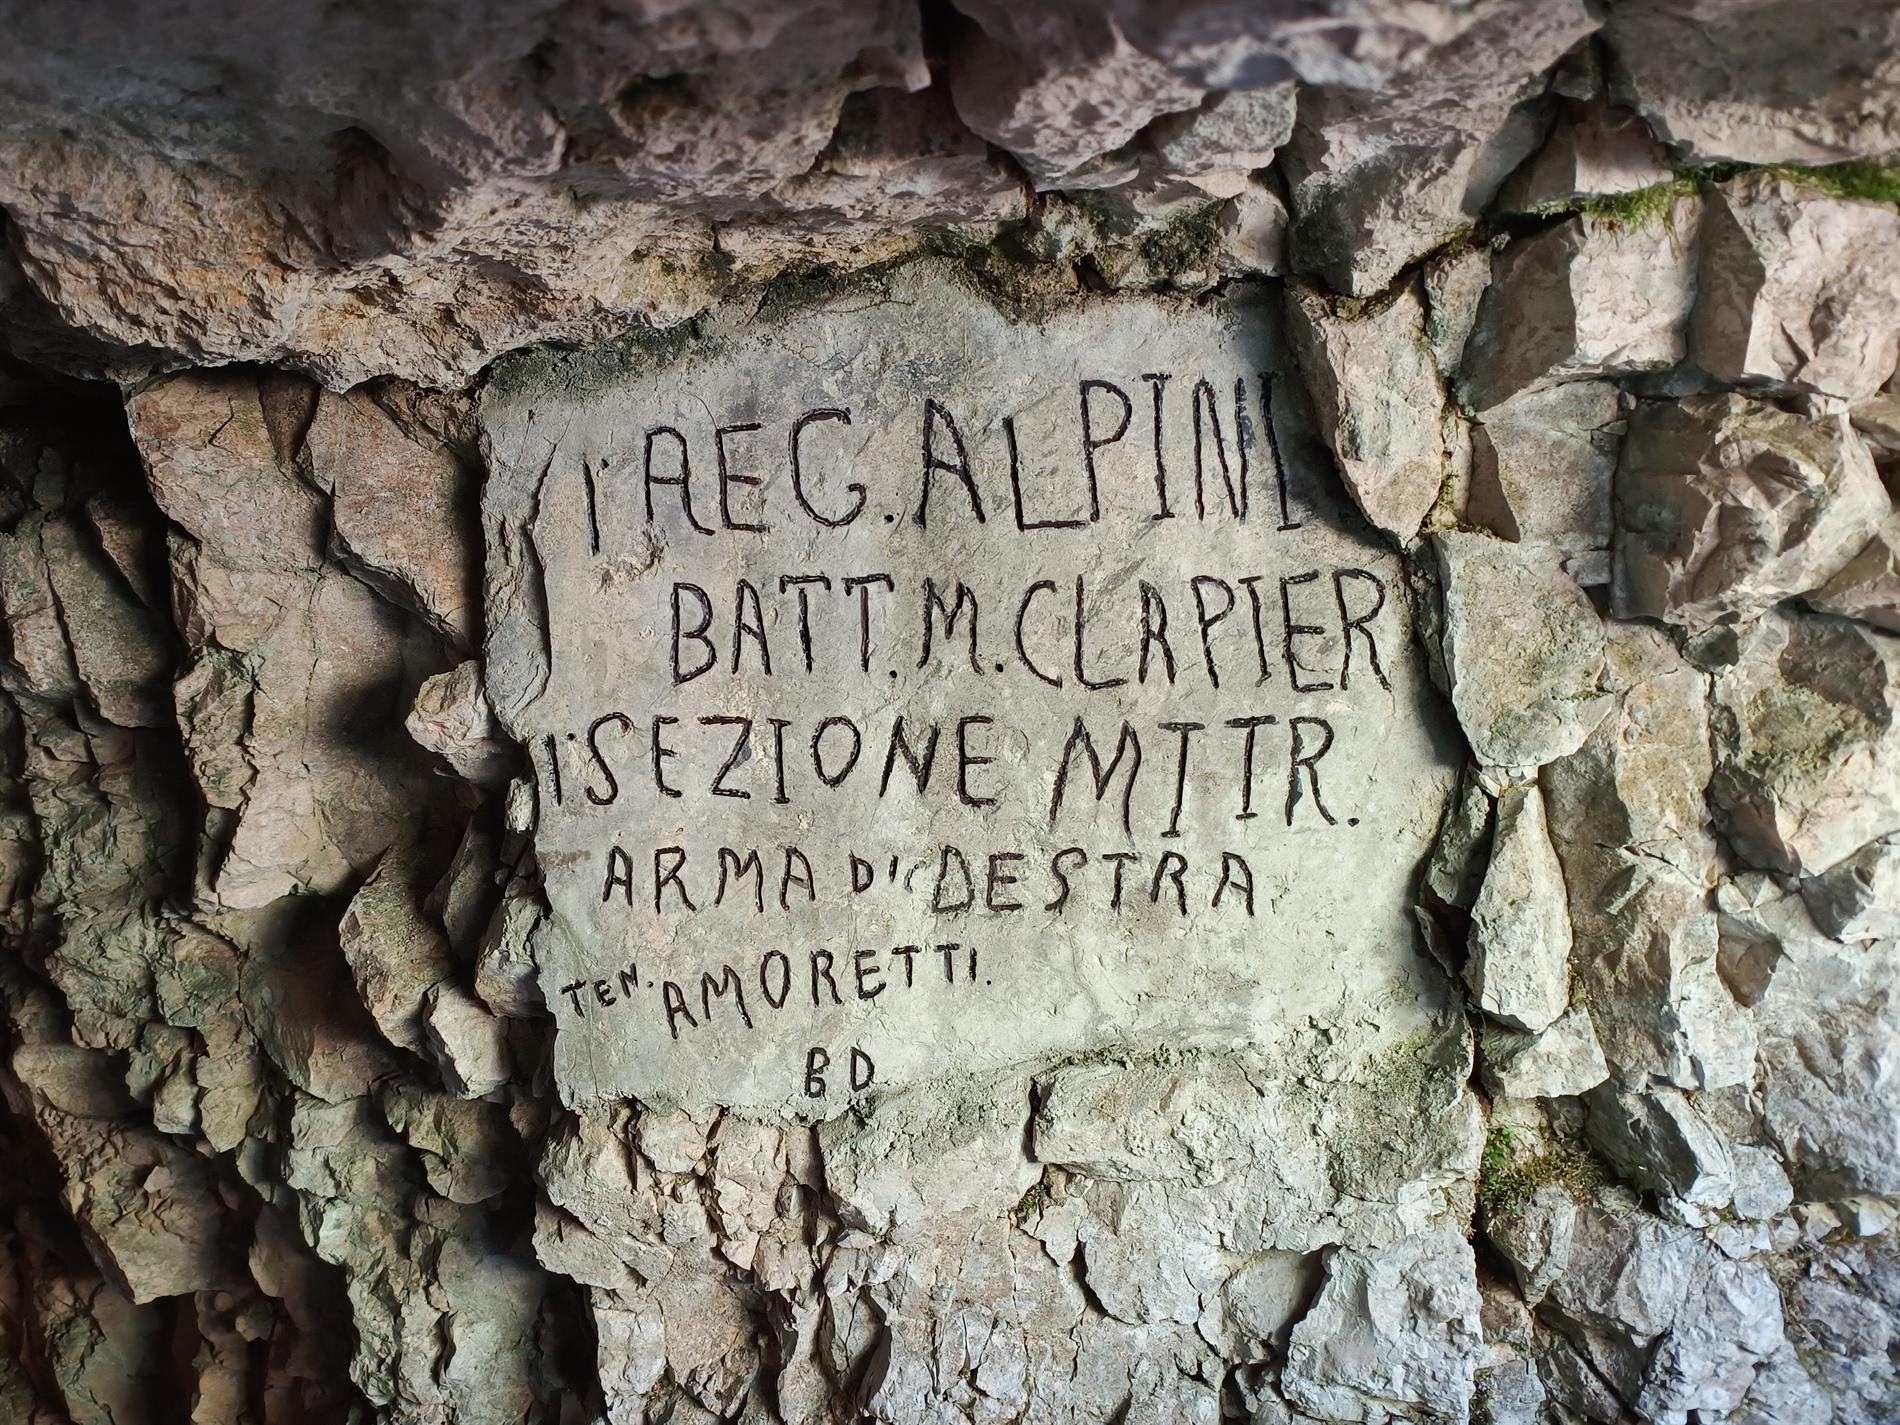 1° REG. ALPINI
BATT. M. CLAPIER
1° SEZIONE MITR.
ARMA D' DESTRA
TEN. AMORETTI.
BD